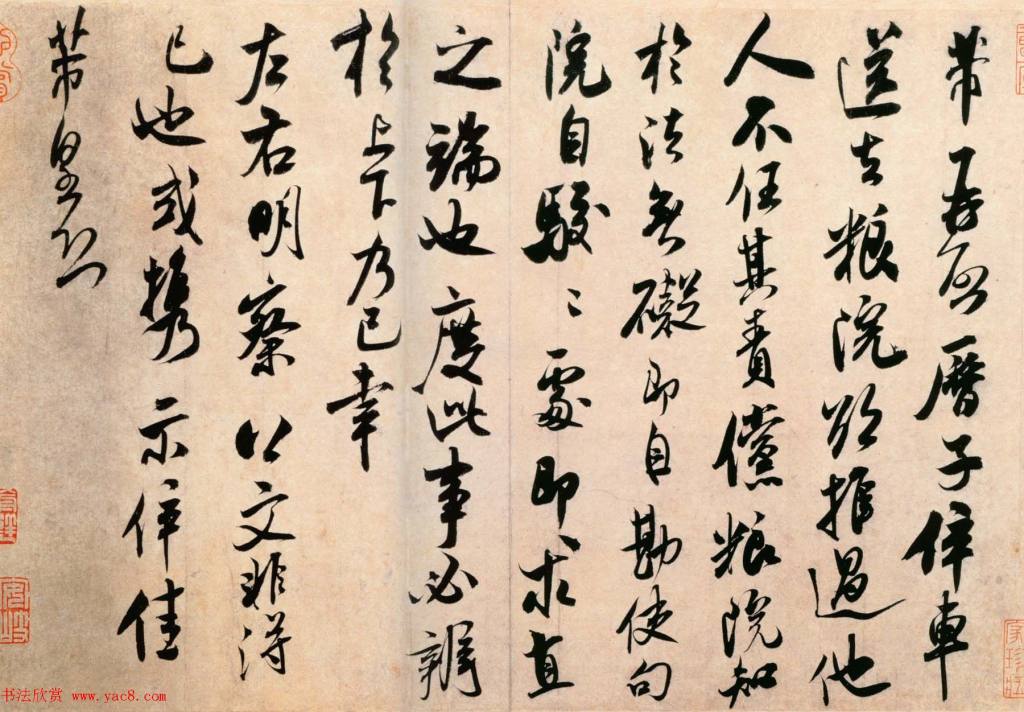 芾再啓曆子倅車
送去粮院欲推過他
人不任其責儻粮院知
於法無礙即自勘使句
院自駮〻處即求直
之端也度此事必辨
於上下乃已幸
左右明察公文非得
已也或攜示倅佳
芾皇恐
书法欣赏 www.yac8.com